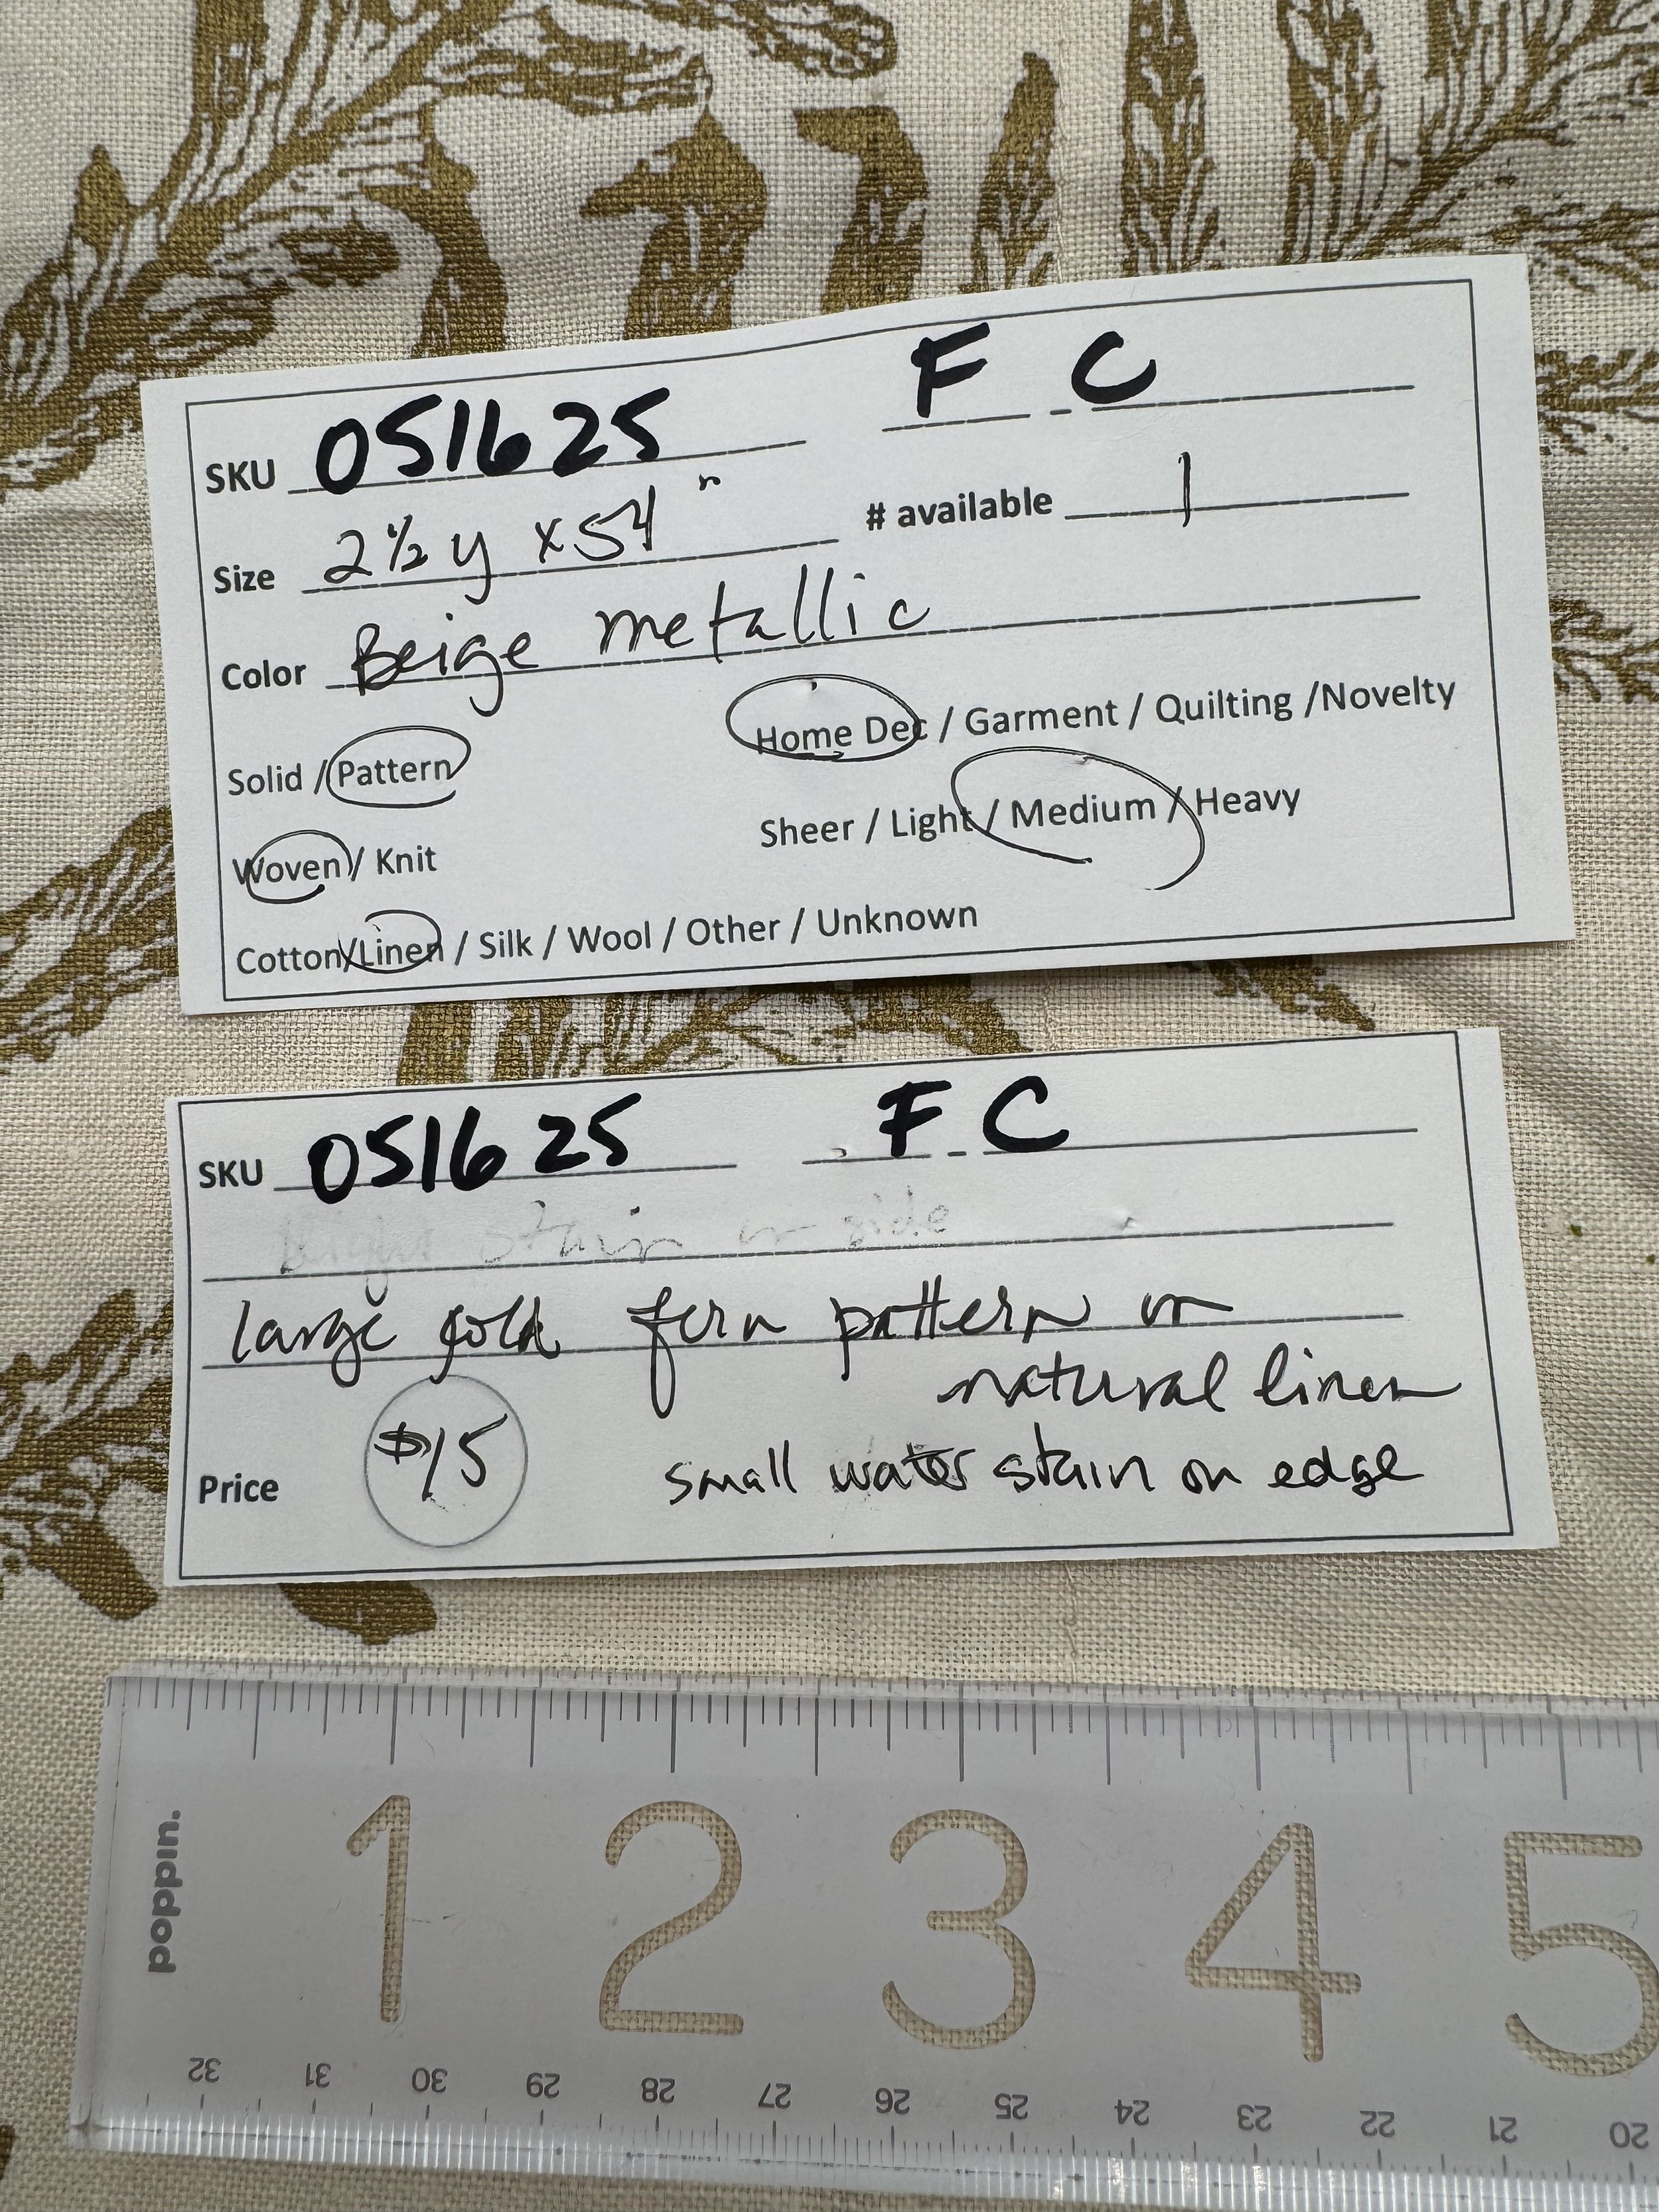 SKU 051625 F - C
Size 2 ½ y x 54" # available 1
Color Beige metallic
Solid / Pattern Home Dec / Garment / Quilting /Novelty
Woven / Knit Sheer / Light / Medium / Heavy
Cotton/Linen / Silk / Wool / Other / Unknown
SKU 051625 F - C
stain on side
large gold fern pattern on
natural linen
Price $15 small water stain on edge
poppin.
1 2 3 4 5
32 31 30 29 28 27 26 25 24 23 22 21 20